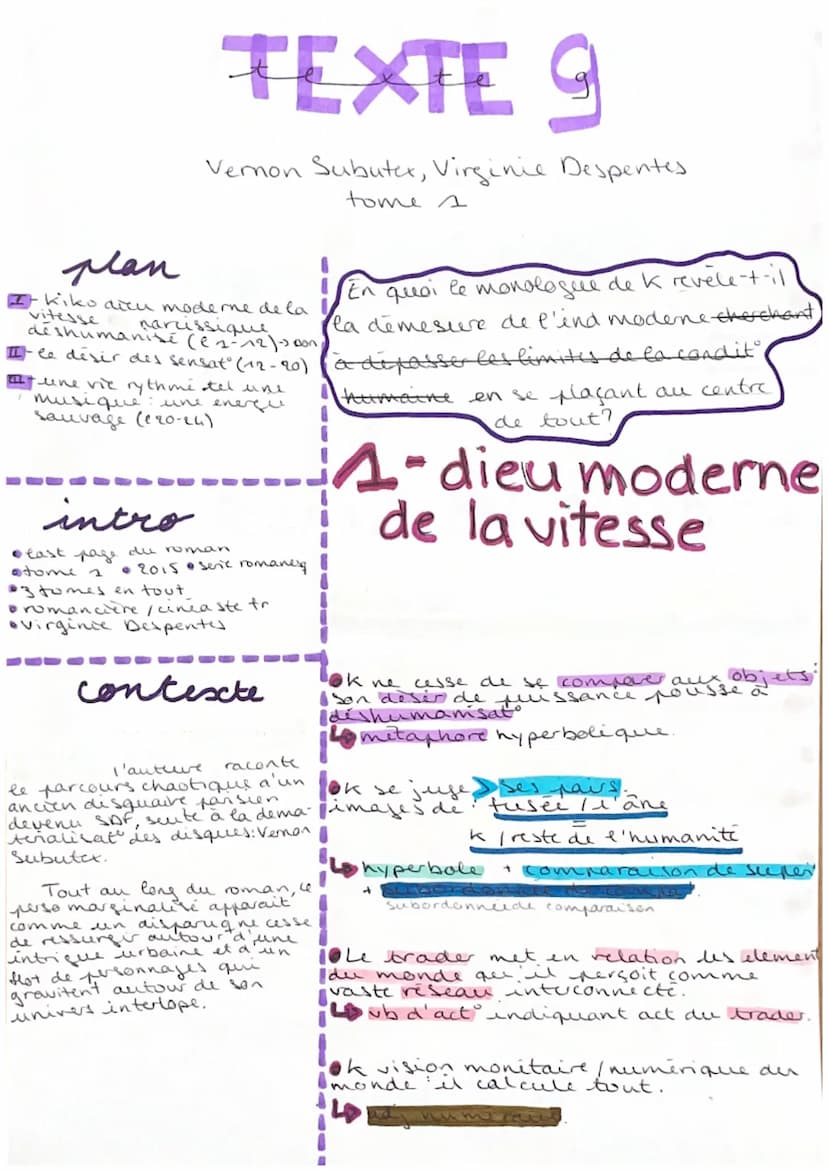 TEXTE 9
texte
Vernon Subutex, Virginie Despentes
tome 1
plan
I - Kiko dieu moderne de la
vitesse narcissique
déshumanisé (l 1-12)
II - le désir des sensat° (12-20)
III - une vie rythmé tel une
musique : une energie
sauvage (l20-24)
intro
• last page du roman
• tome 1 • 2015 • serie romanesq
• 3 tomes en tout
• romancière / cinéaste fr
• Virginie Despentes
contexte
l'auteure raconte
le parcours chaotique d'un
ancien disquaire parisien
devenu SDF, suite à la déma-
térialisat° des disques: Vernon
Subutex.
Tout au long du roman, ce
perso marginalisé apparait
comme un disparu qui ne cesse
de ressurgir autour d'une
intrigue urbaine et d'un
flot de personnages qui
gravitent autour de son
univers interlope.
En quoi le monologue de K revèle-t-il
la démesure de l'ind moderne cherchant
à dépasser les limites de la condit°
humaine en se plaçant au centre
de tout?
1- dieu moderne
de la vitesse
• K ne cesse de se comparer aux objets
son désir de puissance pousse à
déshumanisat°
↳ métaphore hyperbolique.
• K se juge > ses pairs.
images de : fusée / l'âne
=
K / reste de l'humanité
↳ hyperbole + comparaison de superi
+
subordonnée de comparaison
• Le trader met en relation les element
du monde qu'il perçoit comme
vaste réseau interconnecté.
↳ vb d'act° indiquant act du trader.
• K vision monétaire / numérique du
monde : il calcule tout.
↳ adj numéraux